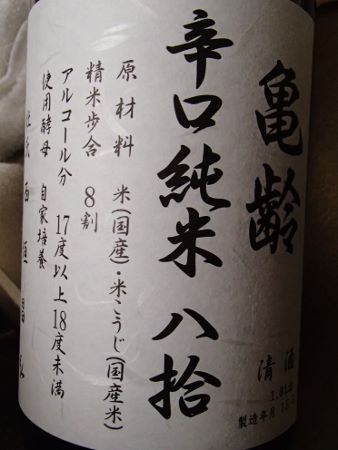 亀齢
辛口純米 八拾
清酒
製造年月
原材料 米(国産)・米こうじ(国産米)
精米歩合 8割
アルコール分 17度以上18度未満
使用酵母 自家培養